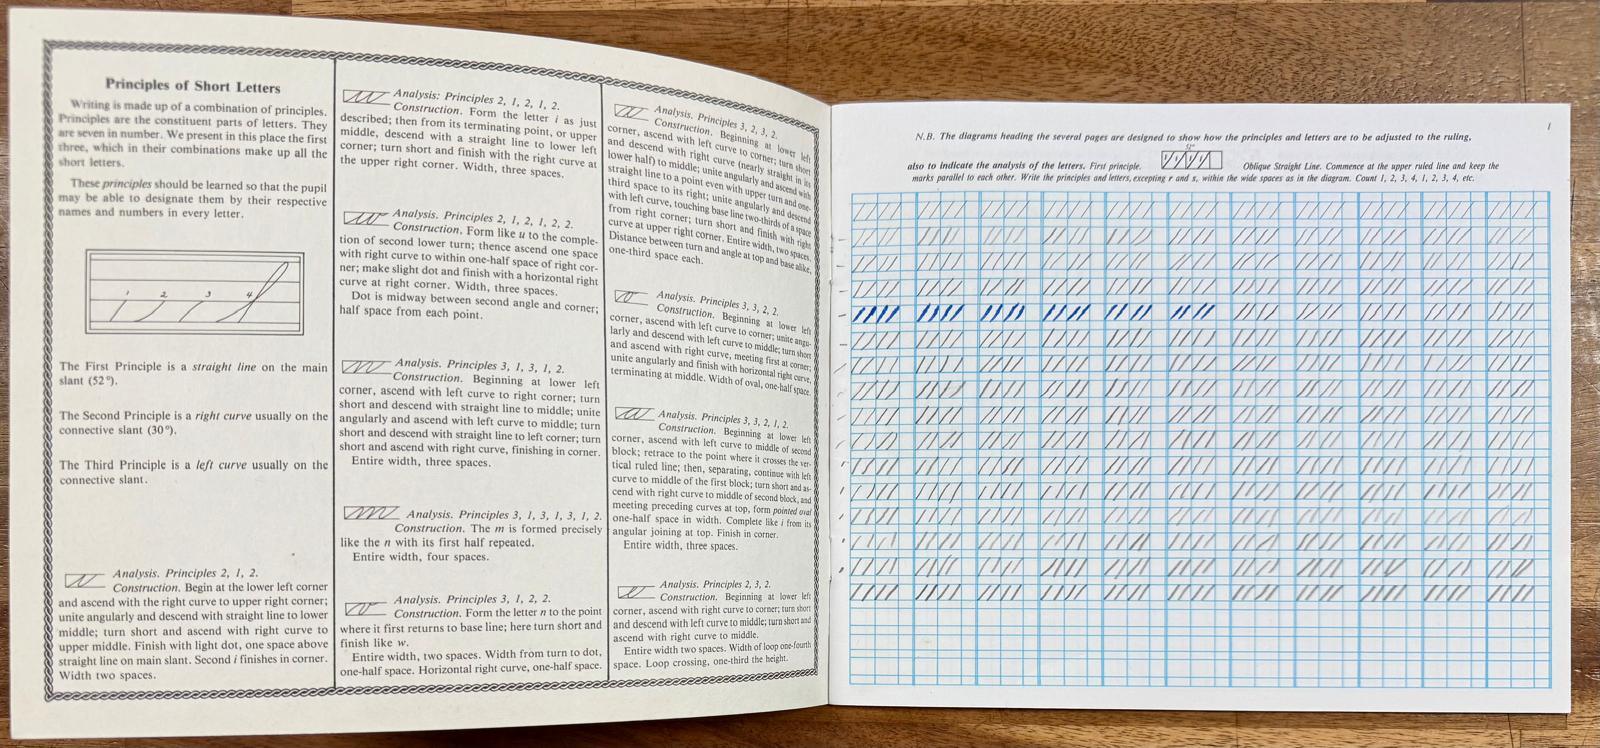 Principles of Short Letters
Writing is made up of a combination of principles.
Principles are the constituent parts of letters. They
are seven in number. We present in this place the first
three, which in their combinations make up all the
short letters.
These principles should be learned so that the pupil
may be able to designate them by their respective
names and numbers in every letter.
1 2 3 4
The First Principle is a straight line on the main
slant (52°).
The Second Principle is a right curve usually on the
connective slant (30°).
The Third Principle is a left curve usually on the
connective slant.
Analysis. Principles 2, 1, 2.
Construction. Begin at the lower left corner
and ascend with the right curve to upper right corner;
unite angularly and descend with straight line to lower
middle; turn short and ascend with right curve to
upper middle. Finish with light dot, one space above
straight line on main slant. Second i finishes in corner.
Width two spaces.
Analysis: Principles 2, 1, 2, 1, 2.
Construction. Form the letter i as just
described; then from its terminating point, or upper
middle, descend with a straight line to lower left
corner; turn short and finish with the right curve at
the upper right corner. Width, three spaces.
Analysis. Principles 2, 1, 2, 1, 2, 2.
Construction. Form like u to the comple-
tion of second lower turn; thence ascend one space
with right curve to within one-half space of right cor-
ner; make slight dot and finish with a horizontal right
curve at right corner. Width, three spaces.
Dot is midway between second angle and corner;
half space from each point.
Analysis. Principles 3, 1, 3, 1, 2.
Construction. Beginning at lower left
corner, ascend with left curve to right corner; turn
short and descend with straight line to middle; unite
angularly and ascend with left curve to middle; turn
short and descend with straight line to left corner; turn
short and ascend with right curve, finishing in corner.
Entire width, three spaces.
Analysis. Principles 3, 1, 3, 1, 3, 1, 2.
Construction. The m is formed precisely
like the n with its first half repeated.
Entire width, four spaces.
Analysis. Principles 3, 1, 2, 2.
Construction. Form the letter n to the point
where it first returns to base line; here turn short and
finish like w.
Entire width, two spaces. Width from turn to dot,
one-half space. Horizontal right curve, one-half space.
Analysis. Principles 3, 2, 3, 2.
Construction. Beginning at lower left
corner, ascend with left curve to corner; turn short
and descend with right curve (nearly straight in its
lower half) to middle; unite angularly and ascend with
straight line to a point even with upper turn and one-
third space to its right; unite angularly and descend
with left curve, touching base line two-thirds of a space
from right corner; turn short and finish with right
curve at upper right corner. Entire width, two spaces.
Distance between turn and angle at top and base alike,
one-third space each.
Analysis. Principles 3, 3, 2, 2.
Construction. Beginning at lower left
corner, ascend with left curve to corner; unite angu-
larly and descend with left curve to middle; turn short
and ascend with right curve, meeting first at corner;
unite angularly and finish with horizontal right curve,
terminating at middle. Width of oval, one-half space.
Analysis. Principles 3, 3, 2, 1, 2.
Construction. Beginning at lower left
corner, ascend with left curve to middle of second
block; retrace to the point where it crosses the ver-
tical ruled line; then, separating, continue with left
curve to middle of the first block; turn short and as-
cend with right curve to middle of second block, and
meeting preceding curves at top, form pointed oval
one-half space in width. Complete like i from its
angular joining at top. Finish in corner.
Entire width, three spaces.
Analysis. Principles 2, 3, 2.
Construction. Beginning at lower left
corner, ascend with right curve to corner; turn short
and descend with left curve to middle; turn short and
ascend with right curve to middle.
Entire width two spaces. Width of loop one-fourth
space. Loop crossing, one-third the height.
1
N.B. The diagrams heading the several pages are designed to show how the principles and letters are to be adjusted to the ruling,
also to indicate the analysis of the letters. First principle. 52° Oblique Straight Line. Commence at the upper ruled line and keep the
marks parallel to each other. Write the principles and letters, excepting r and s, within the wide spaces as in the diagram. Count 1, 2, 3, 4, 1, 2, 3, 4, etc.